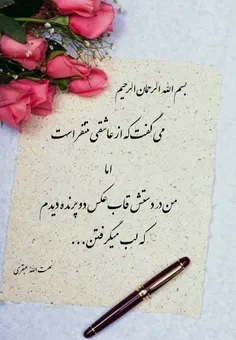 بسم الله الرحمان الرحیم
می گفت که از عاشقی متنفر است
اما
من در دستش قاب عکس دو پرنده دیدم
که لب میگرفتن...